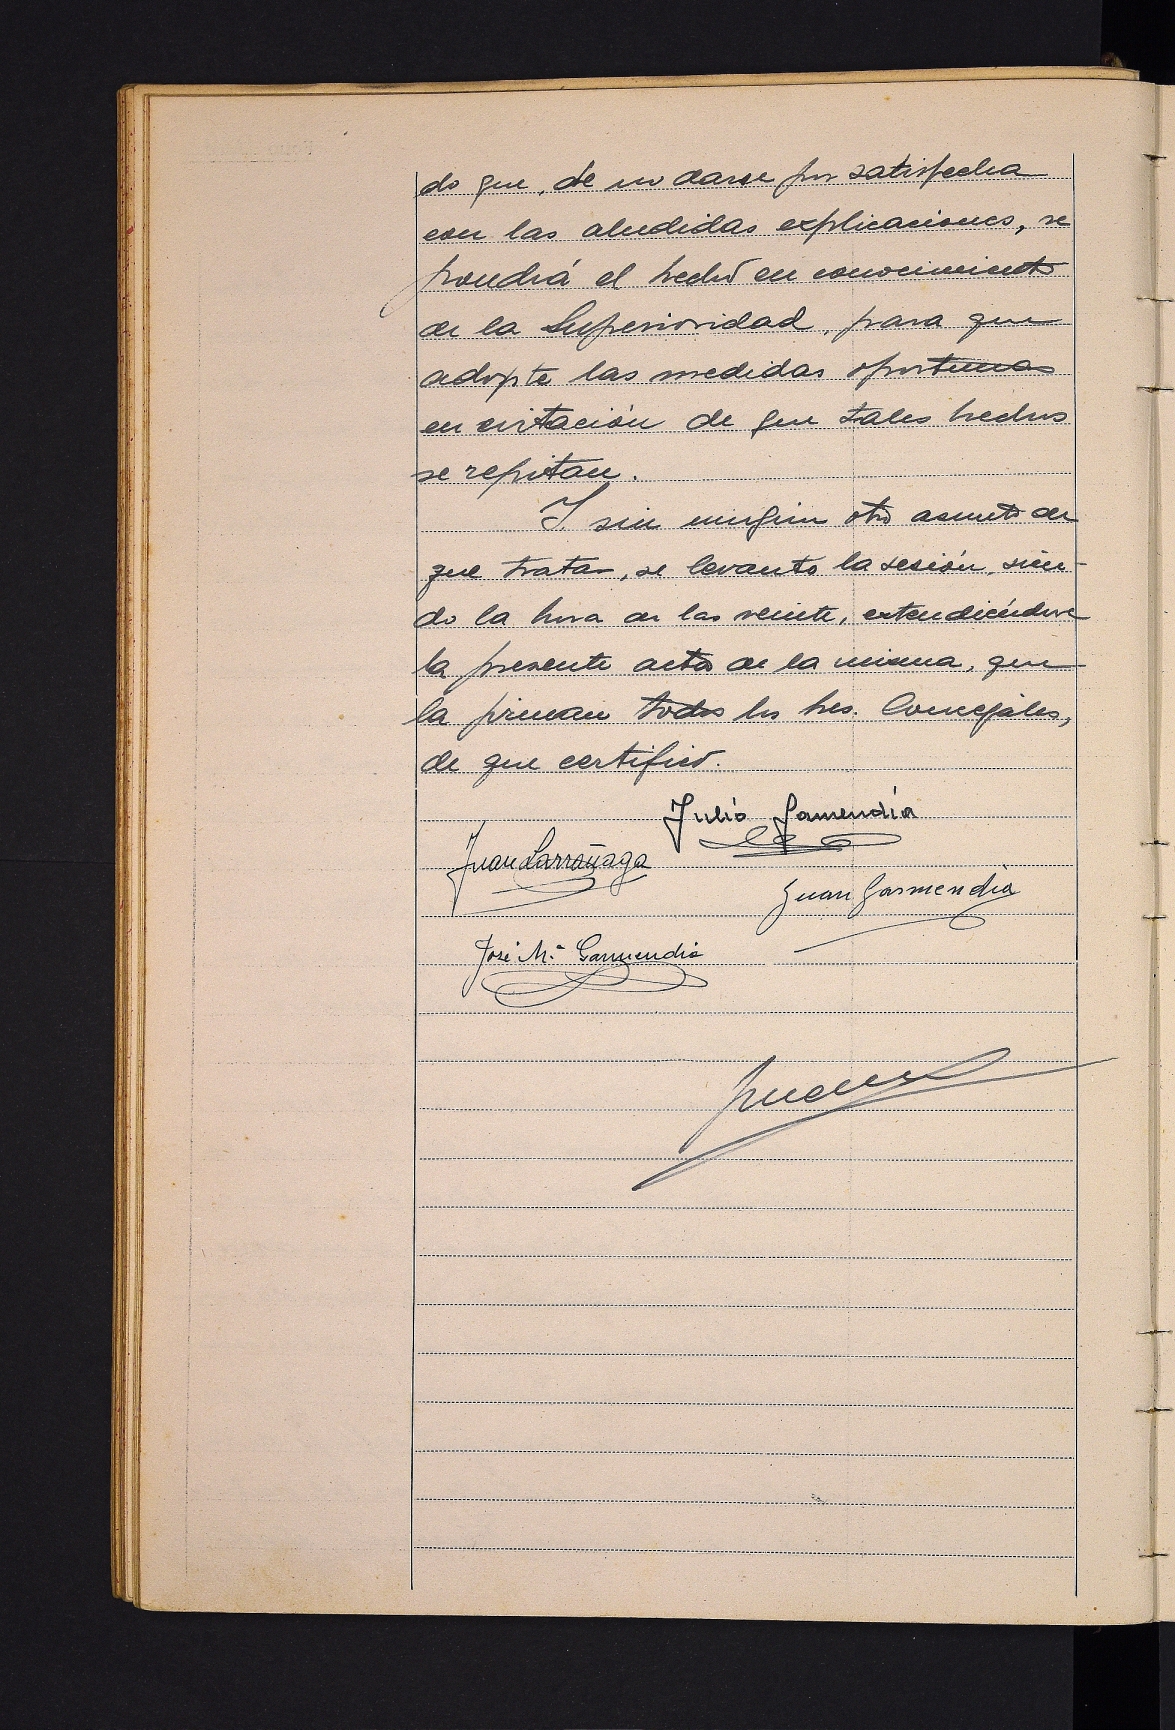 do que, de no darse por satisfecha
con las aludidas explicaciones, se
pondrá el hecho en conocimiento
de la Superioridad, para que
adopte las medidas oportunas
en evitación de que tales hechos
se repitan.
Y sin ningún otro asunto de
que tratar, se levanto la sesión, sien-
do la hora de las veinte, extendiéndose
la presente acta de la misma, que
la firman todos los Sres. Concejales,
de que certifico.
Julio Garmendia
Juan Larrañaga
Juan Garmendia
José Mª Garmendia